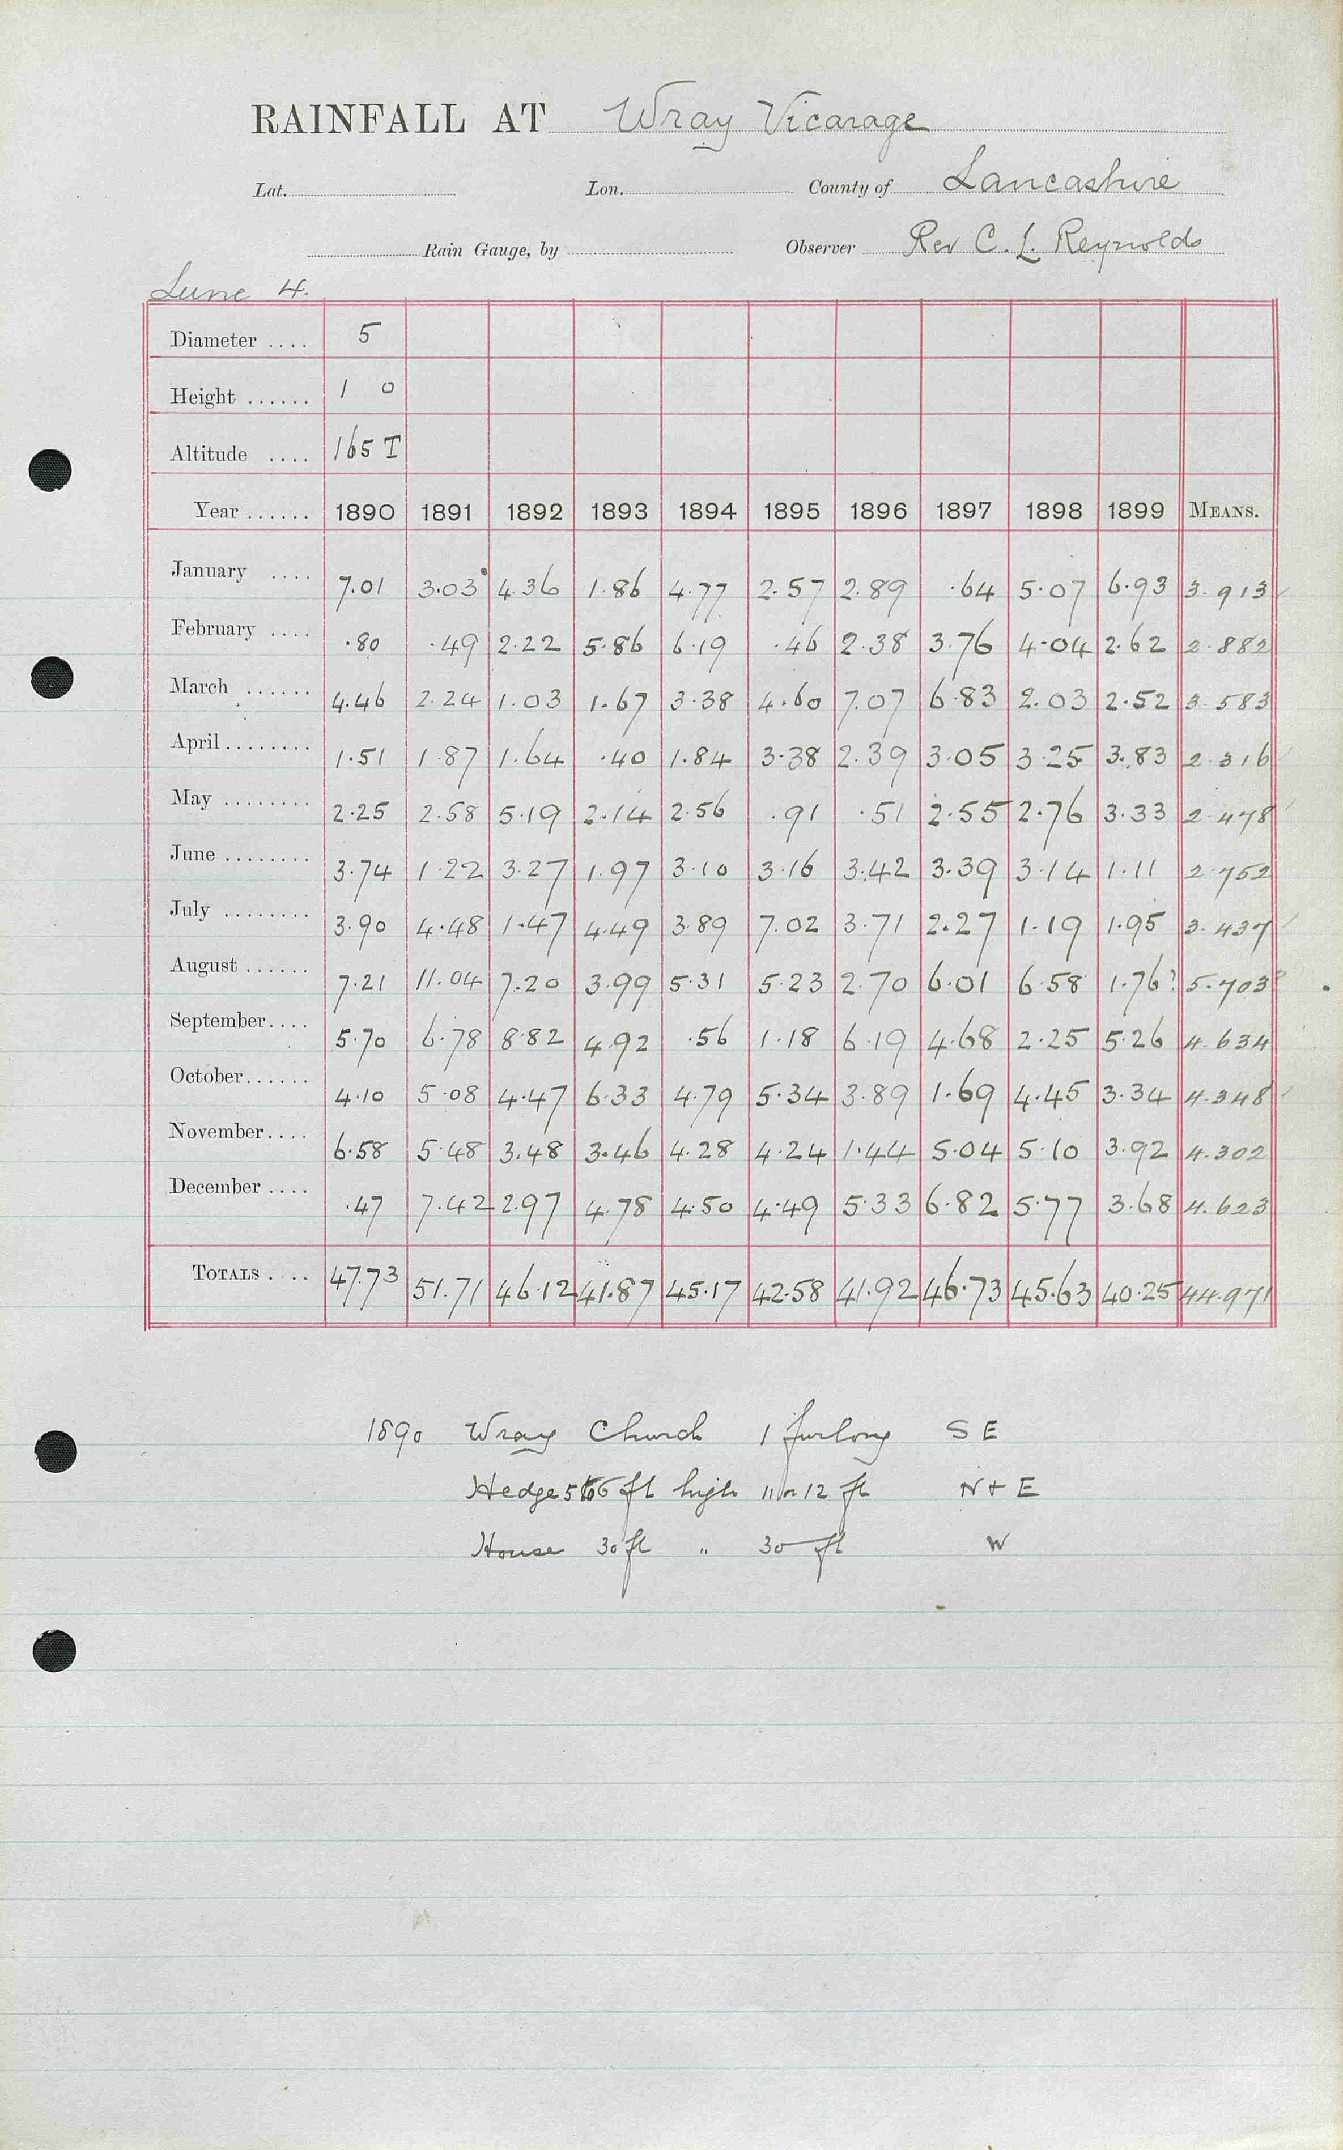 RAINFALL AT Wray Vicarage
Lat. Lon. County of Lancashire
Rain Gauge, by Observer Rev C. L. Reynolds
Lune 4.
Diameter .... 5
Height ...... 1 0
Altitude .... 165 T
Year ...... 1890 1891 1892 1893 1894 1895 1896 1897 1898 1899 MEANS.
January .... 7.01 3.03 4.36 1.86 4.77 2.57 2.89 .64 5.07 6.93 3.913
February .... .80 .49 2.22 5.86 6.19 .46 2.38 3.76 4.04 2.62 2.882
March ...... 4.46 2.24 1.03 1.67 3.38 4.60 7.07 6.83 2.03 2.52 3.583
April ........ 1.51 1.87 1.64 .40 1.84 3.38 2.39 3.05 3.25 3.83 2.316
May ........ 2.25 2.58 5.19 2.14 2.56 .91 .51 2.55 2.76 3.33 2.478
June ........ 3.74 1.22 3.27 1.97 3.10 3.16 3.42 3.39 3.14 1.11 2.752
July ........ 3.90 4.48 1.47 4.49 3.89 7.02 3.71 2.27 1.19 1.95 3.437
August ...... 7.21 11.04 7.20 3.99 5.31 5.23 2.70 6.01 6.58 1.76? 5.703?
September.... 5.70 6.78 8.82 4.92 .56 1.18 6.19 4.68 2.25 5.26 4.634
October...... 4.10 5.08 4.47 6.33 4.79 5.34 3.89 1.69 4.45 3.34 4.348
November.... 6.58 5.48 3.48 3.46 4.28 4.24 1.44 5.04 5.10 3.92 4.302
December .... .47 7.42 2.97 4.78 4.50 4.49 5.33 6.82 5.77 3.68 4.623
TOTALS .... 47.73 51.71 46.12 41.87 45.17 42.58 41.92 46.73 45.63 40.25 44.971
1890 Wray Church 1 furlong S E
Hedge 5 to 6 ft high 11 or 12 ft N + E
House 30 ft " 30 ft W